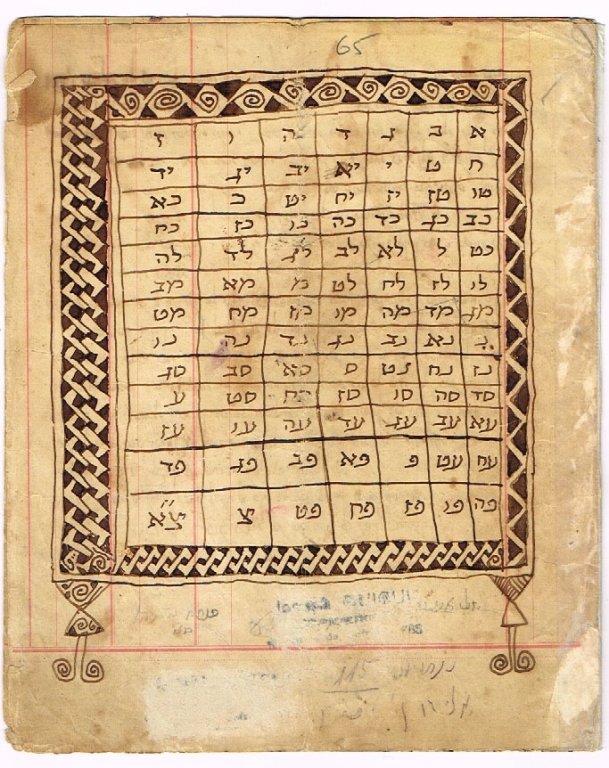 65
א ב ג ד ה ו ז
ח ט י יא יב יג יד
טו טז יז יח יט כ כא
כב כג כד כה כו כז כח
כט ל לא לב לג לד לה
לו לז לח לט מ מא מב
מג מד מה מו מז מח מט
נ נא נב נג נד נה נו
נז נח נט ס סא סב סג
סד סה סו סז סח סט ע
עא עב עג עד עה עו עז
עח עט פ פא פב פג פד
פה פו פז פח פט צ צ״א